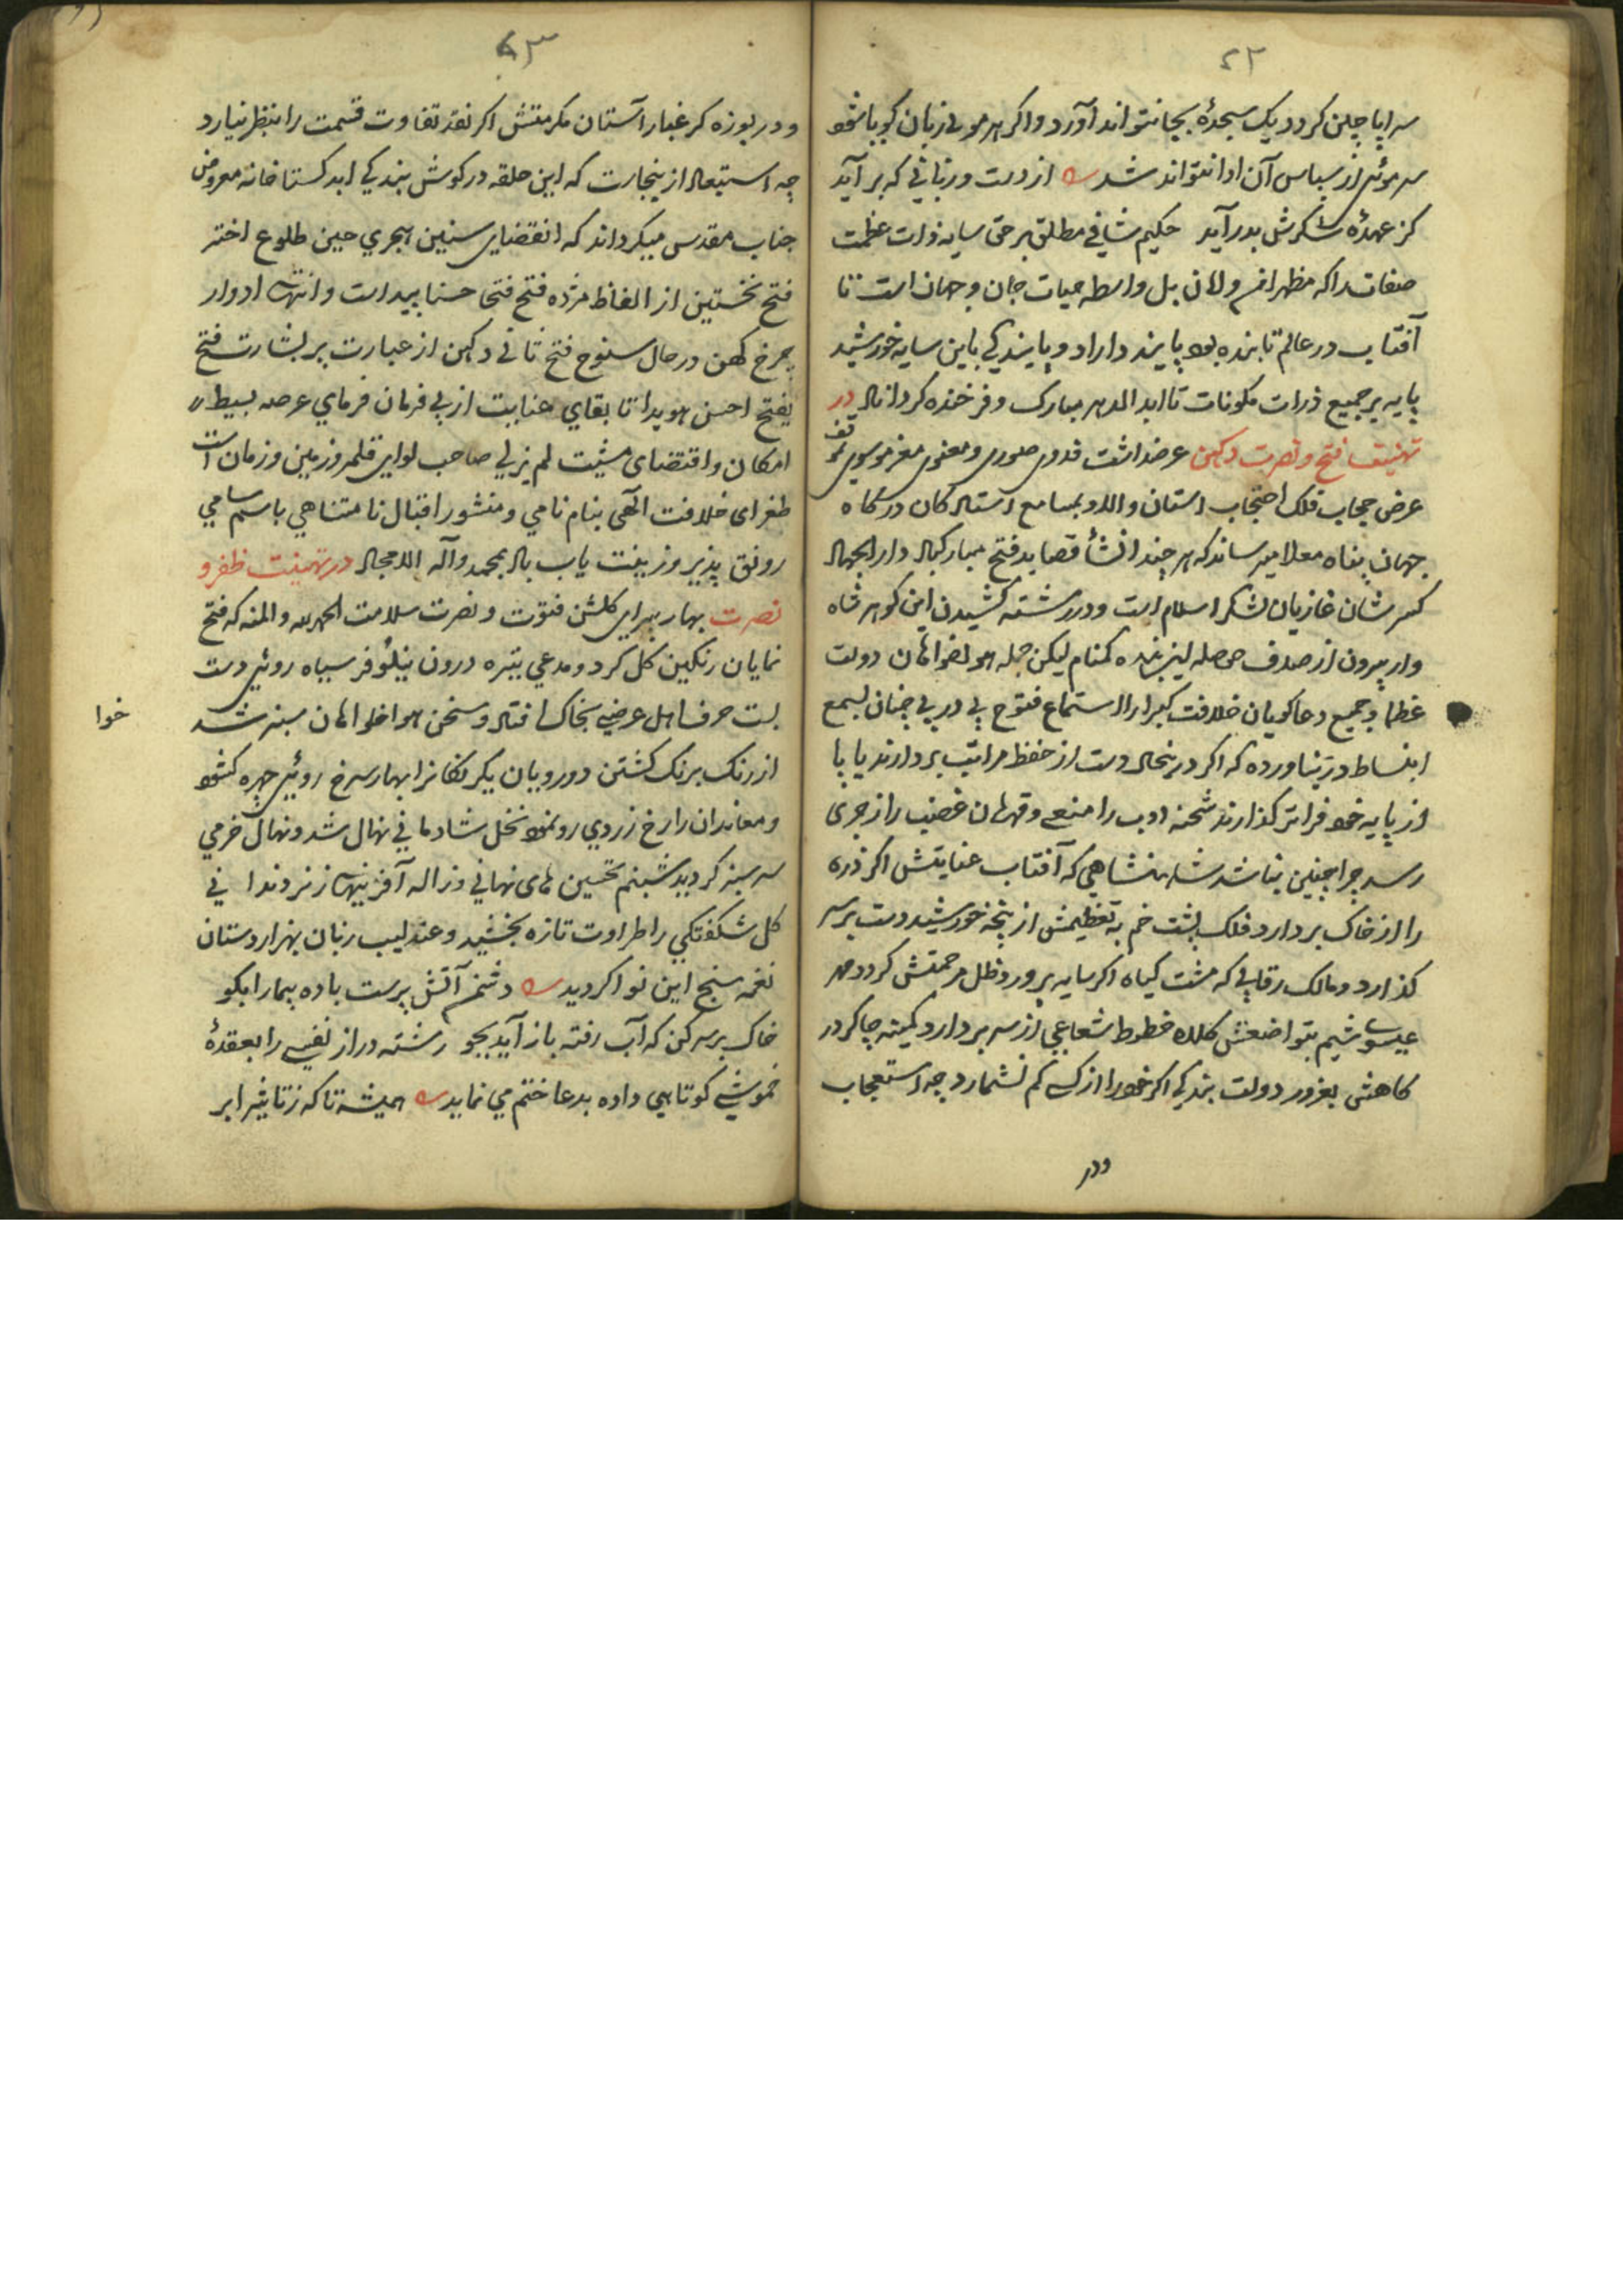 ۴۲
سراپا جبین کردد یک سجدهٔ بجا نتواند آورد و اکر هر موی زبان کویا شود
سر موئی از سپاس آن ادا نتواند شد از دست و زبانی که بر آید
کز عهدهٔ شکرش بدر آید حکیم شافی مطلق بر حق سایه ذات عظمت
صفات را که مظهر امن و امان بل واسطه حیات جان و جهان است تا
آفتاب در عالم تابنده بود پاینده داراد و پایندکی باین سایه خورشید
پایه بر جمیع ذرات مکونات تا ابد الدهر مبارک و فرخنده کرداناد در
تهنیت فتح و نصرت دکهن عرضداشت فدوی صوری و معنوی معز موسوی
عرض حجاب فلک احتجاب استان والا و بمسامع استادکان درکاه
جهان پناه معلا میرساند که هر چند انشأ قصاید فتح مبارکباد دار الجهاد
کسر شان غازیان لشکر اسلام است و در رشته کشیدن این کوهر شاه
وار بیرون از صدف حوصله این بنده کمنام لیکن جمله هواخواهان دولت
عظما و جمیع دعاکویان خلافت کبرا را استماع فتوح پی در پی چنان بسمع
انبساط در نیاورده که اکر درینحال دست از حفظ مراتب بردارند یا پا
از پایه خود فراتر کذارند شحنه ادب را منعی و قهرمان غضب را زجری
رسد چرا چنین نباشد شاهنشاهی که آفتاب عنایتش اکر ذره
را از خاک بردارد فلک پشت خم به تعظیمش از پنجه خورشید دست بر سر
کذارد و مالک رقابی که مشت کیاه اکر سایه پرور و ظل مرحمتش کردد مهر
عیسوی شیم بتواضعش کلاه خطوط شعاعی از سر بردارد کمینه چاکر در
کاهش بغرور دولت بندکی اکر خود را از کی کم نشمارد چه استعجاب
ودر
۴۳
و دریوزه کر غبار آستان مکرمتش اکر نقد تفاوت قسمت را بنظر نیارد
چه استبعاد ازینجارت که این حلقه در کوش بندکی ابد کستاخانه معروض
جناب مقدس میکرداند که انقضای سنین هجری حین طلوع اختر
فتح نخستین از الفاظ مژده فتح فتحا حسنا پیداست و انتهای ادوار
چرخ کهن در حال سنوح فتح ثانی دکهن از عبارت بر بشارت فتح
یفتح احسن هویدا تا بقای عنایت ازلی فرمان فرمای عرصه بسیط
امکان و اقتضای مشیت لم یزلی صاحب لوای قلمرو زمین و زمان است
طغرای خلافت الهی بنام نامی و منشور اقبال نامتناهی باسم سامی
رونق پذیر و زینت یاب باد بمحمد و آله الامجاد در تهنیت ظفر و
نصرت بهار پیرای کلشن فتوت و نصرت سلامت الحمد لله و المنه که فتح
نمایان رنکین کل کرد و مدعی تیره درون نیلوفر سیاه روئی دست
بست حرف اهل عرض بخاک افتاد و سخن هواخواهان سبز شد
خوا
از رنک برنک کشتن دورویان یکرنکانرا بهار سرخ روئی چهره کشود
و معاندان را رخ زردی رو نمود نخل شادمانی نهال شد و نهال خرمی
سر سبز کردید شبنم تحسین های نهانی و ژاله آفرینهای زنردندا نی
کل شکفتکی را طراوت تازه بخشید و عندلیب زبان بهزار دستان
نغمه سنج این نوا کردید دشمنم آتش پرست باده پیما را بکو
خاک بر سر کن که آب رفته باز آید بجو رشته دراز نفسی را بعقدهٔ
خموشی کوتاهی داده بدعا ختم می نماید همیشه تا که ز تاثیر ابر